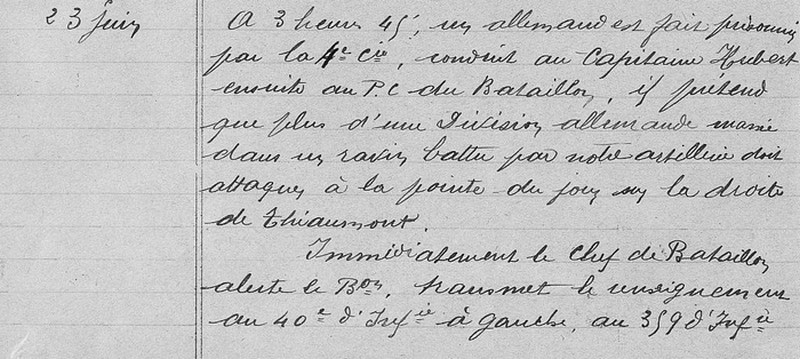 23 Juin
A 3 heures 45, un allemand est fait prisonnier
par la 4e Cie, conduit au Capitaine Hubert
ensuite au P.C du Bataillon, il prétend
que plus d'une Division allemande massée
dans un ravin battu par notre artillerie doit
attaquer à la pointe du jour sur la droite
de Thiaumont.
Immédiatement le Chef de Bataillon
alerte le Bon, transmet le renseignement
au 40e d'Infie à gauche, au 359 d'Infie